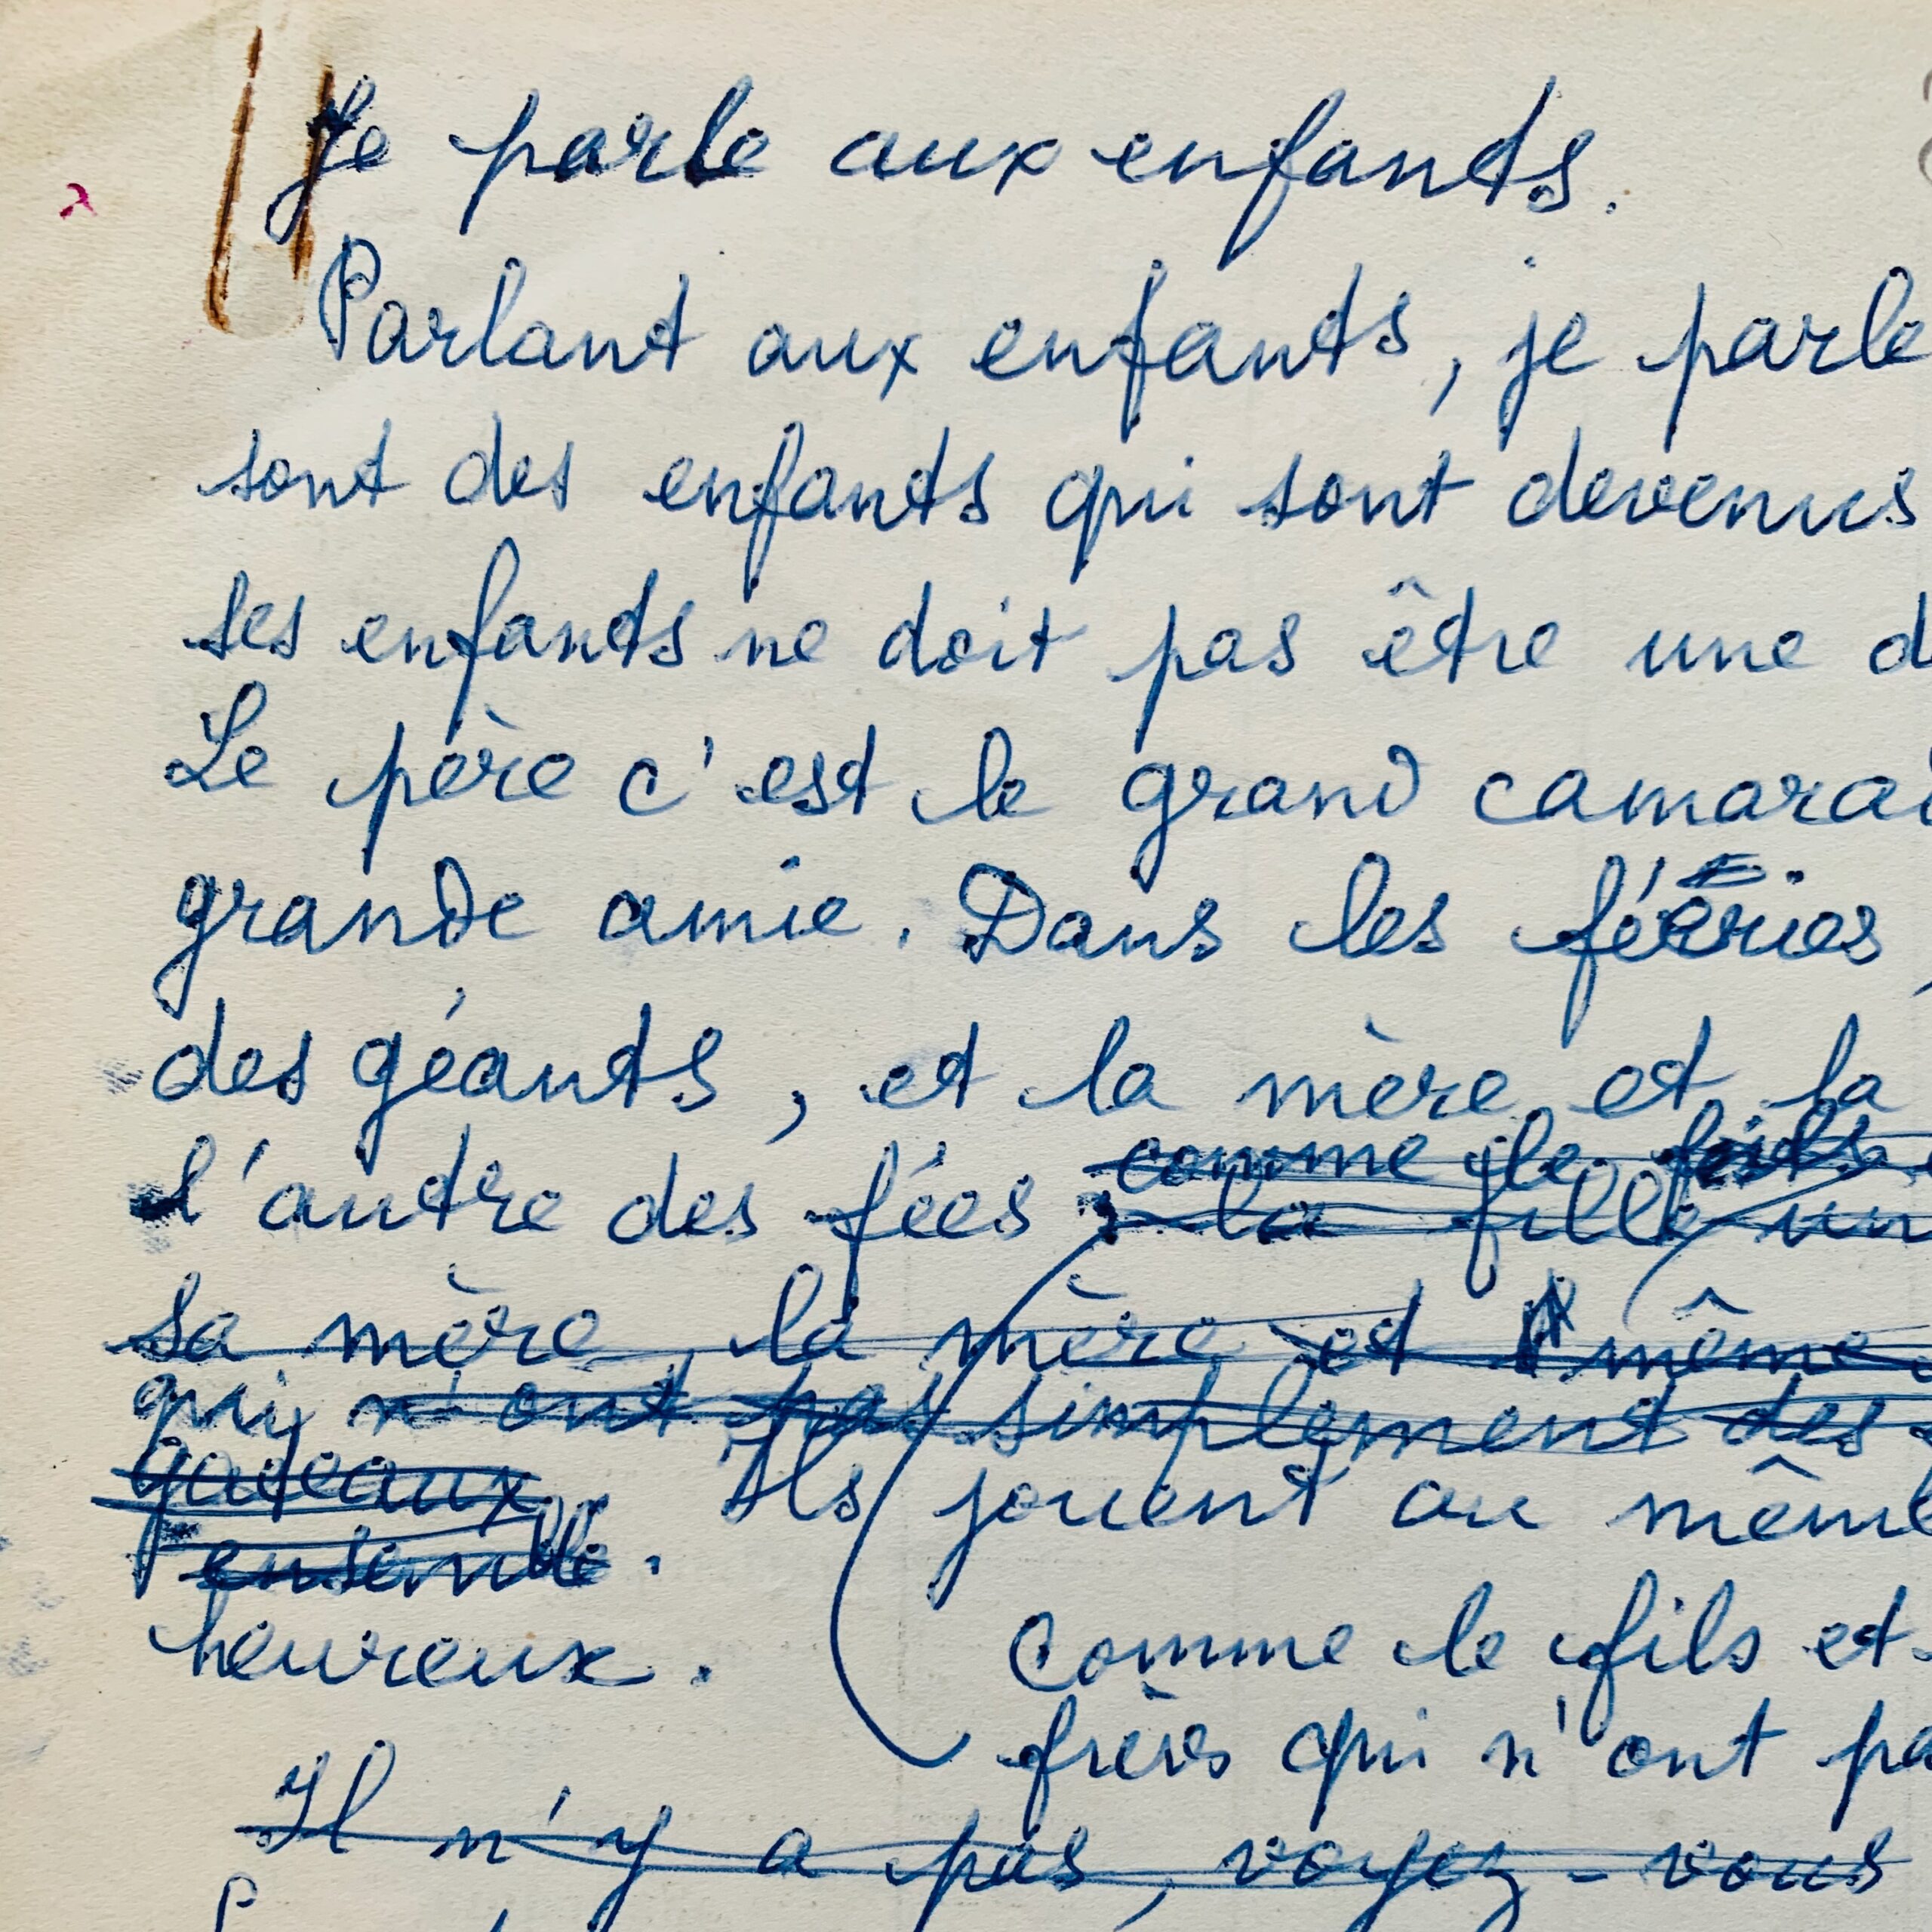 Je parle aux enfants.
Parlant aux enfants, je parle
sont des enfants qui sont devenus
ses enfants ne doit pas être une d
Le père c'est le grand camarad
grande amie. Dans les féeries,
des géants, et la mère et la
comme le
l'autre des fées, la fille un
sa mère, la mère et même
qui n'ont pas simplement des
gateaux Ils jouent au même
ensemble.
heureux. Comme le fils et
frères qui n'ont pa
Il n'y a pas, voyez-vous
P